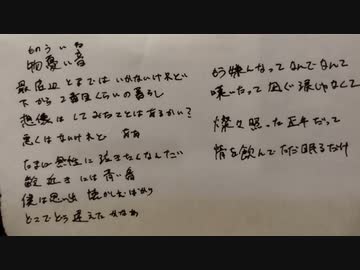 ものういね
物憂い音
最底辺とまではいかないけれど
下から2番目くらいの暮らし
想像はしてみたことはあるかい?
悪くはないけれど
たまに無性に泣きたくなんだい
数近さには青い春
僕は思い出 懐かしむばかり
どこでどう違えた かなあ
もう嫌んなってなんでなんて
嘆いたって凪ぐ 涙じゃなくて
燦々照った正午だって
情を飲んで ただ眠るだけ